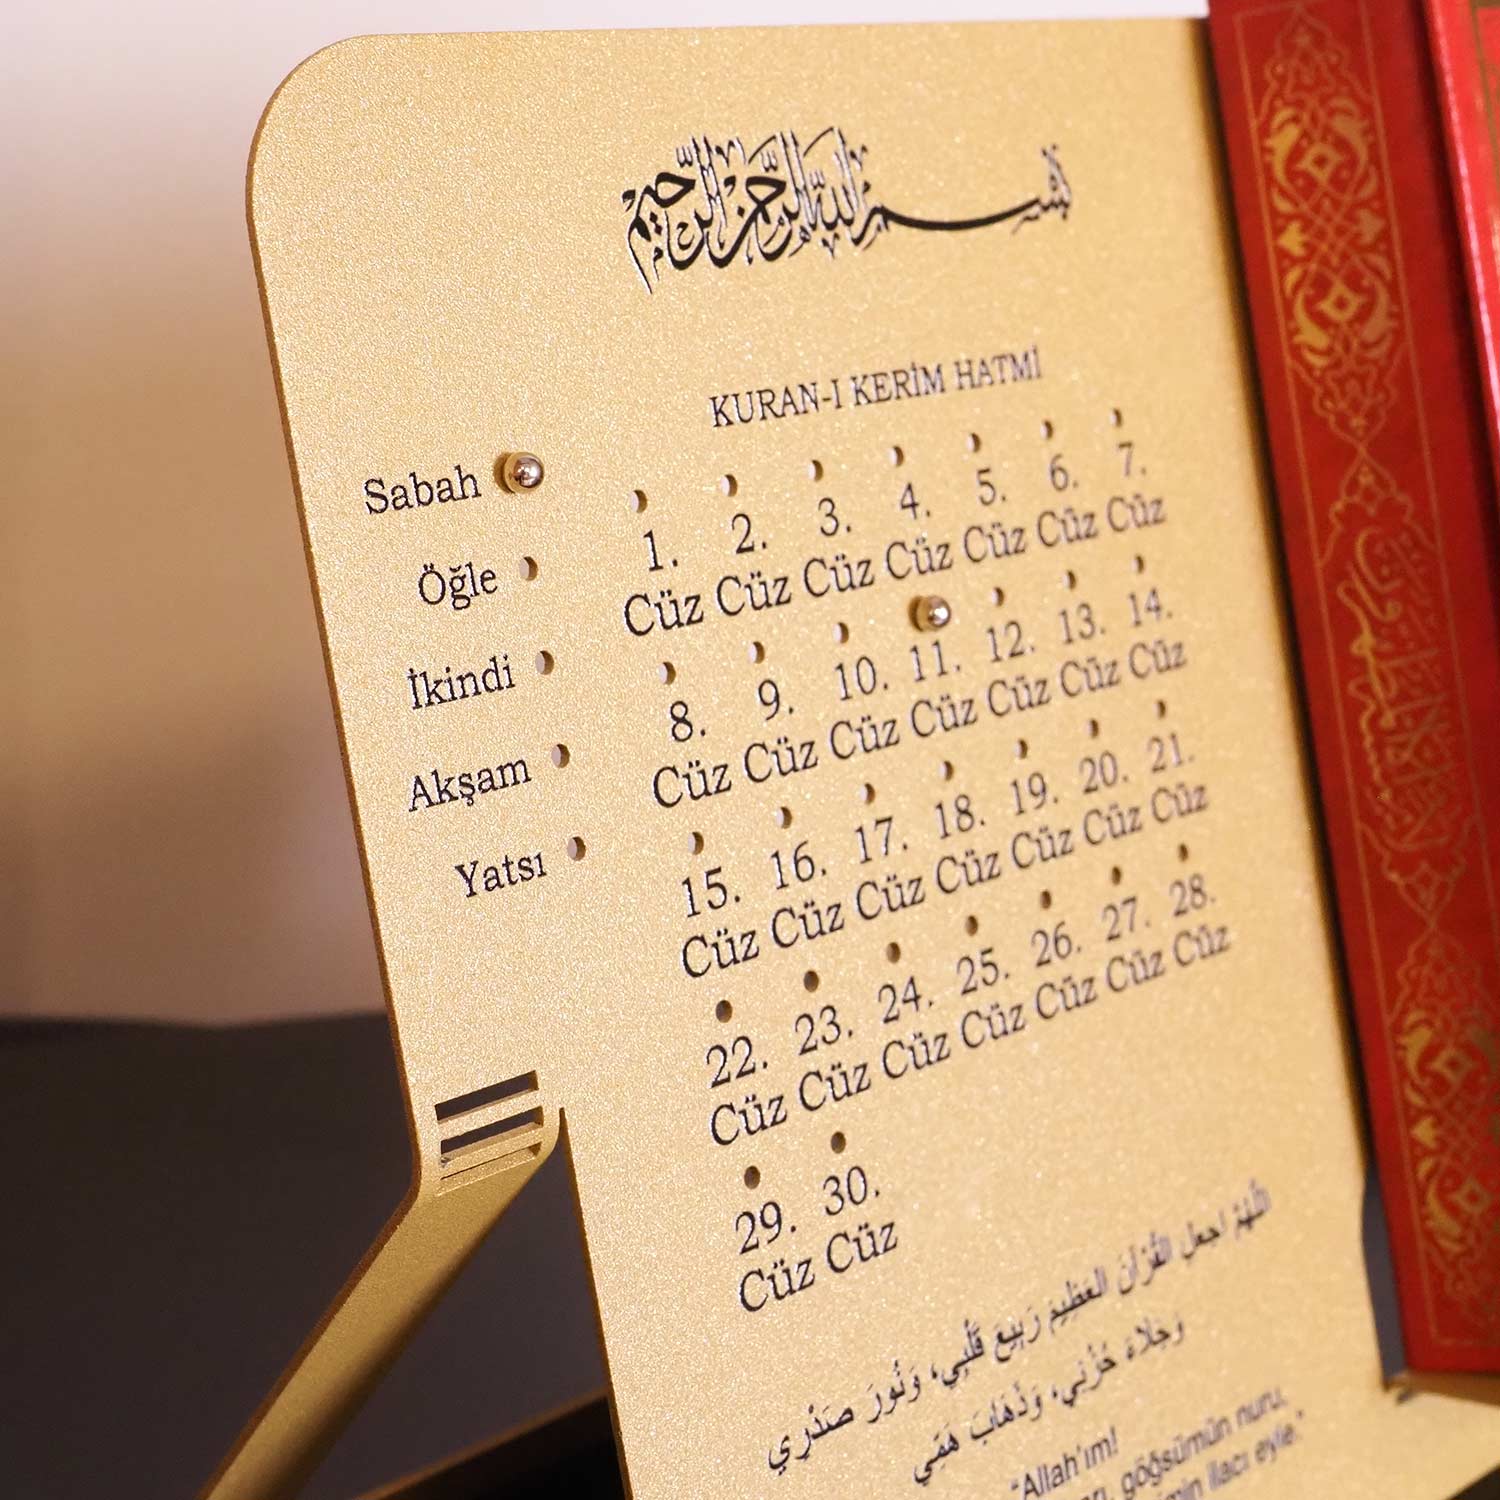 بسم الله الرحمن الرحيم
KURAN-I KERİM HATMİ
Sabah
Öğle
İkindi
Akşam
Yatsı
1. 2. 3. 4. 5. 6. 7.
Cüz Cüz Cüz Cüz Cüz Cüz Cüz
8. 9. 10. 11. 12. 13. 14.
Cüz Cüz Cüz Cüz Cüz Cüz Cüz
15. 16. 17. 18. 19. 20. 21.
Cüz Cüz Cüz Cüz Cüz Cüz Cüz
22. 23. 24. 25. 26. 27. 28.
Cüz Cüz Cüz Cüz Cüz Cüz Cüz
29. 30.
Cüz Cüz
اللَّهُمَّ اجعلِ القُرْآنَ العَظِيمَ رَبِيعَ قَلْبِي، وَنُورَ صَدْرِي
وَجَلاءَ حُزْنِي، وَذَهَابَ هَمِّي
"Allah'ım!
göğsümün nuru,
ilacı eyle."